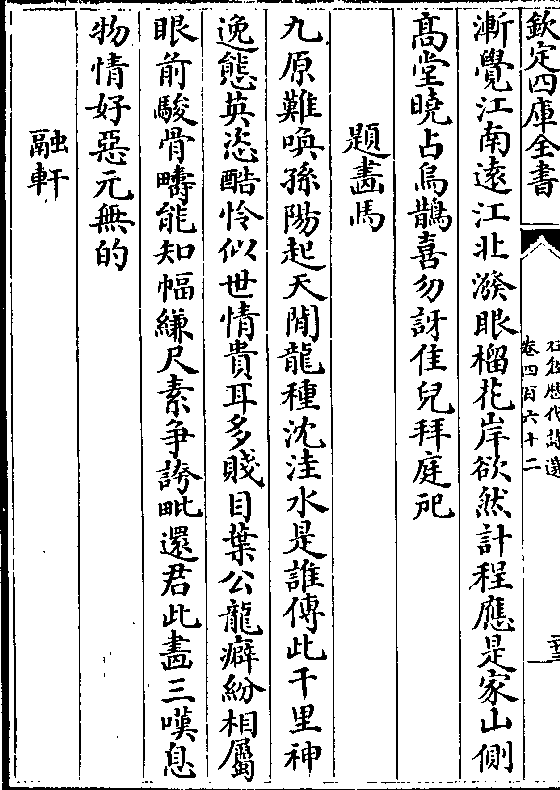 欽定四庫全書
卷四百六十二
漸覺江南遠江北潑眼榴花岸欲然計程應是家山側
髙堂曉占烏鵲喜勿訝佳兒拜庭戺
題畫馬
九原難喚孫陽起天閒龍種沈洼水是誰傳此千里神
逸態英恣酷怜似世情貴耳多賤目葉公龍癖紛相屬
眼前駿骨疇能知幅縑尺素争誇毗還君此畫三嘆息
物情好惡元無的
融軒